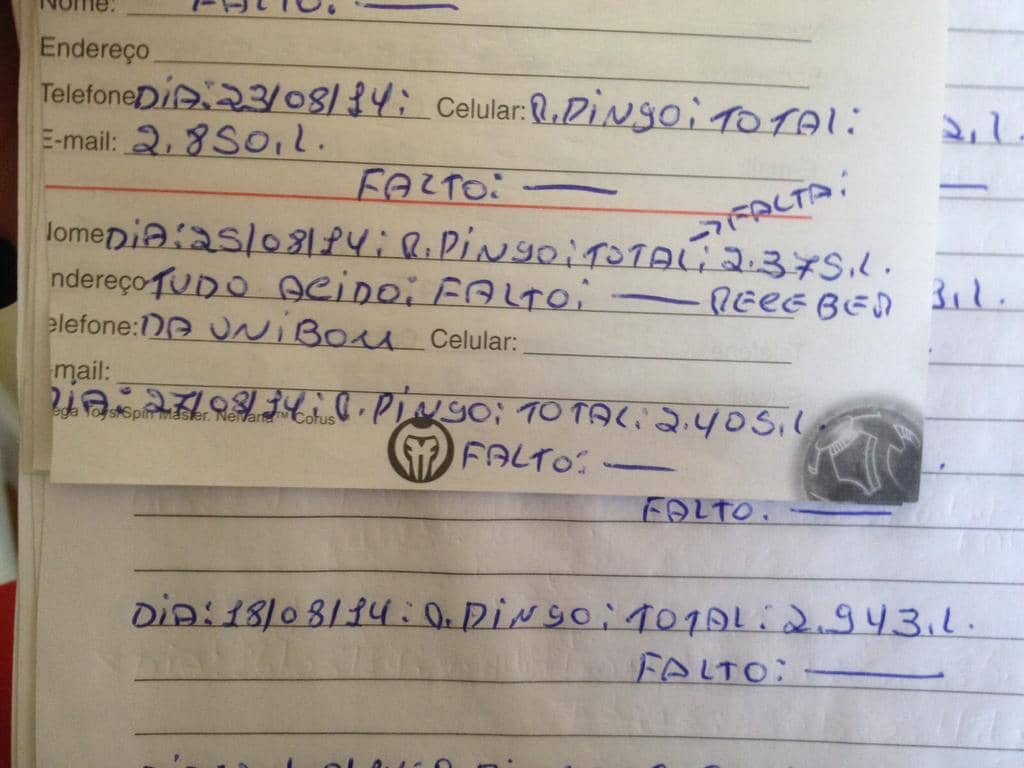 Nome: FALTO: —
Endereço
Telefone DIA: 23/08/14: Celular: R. DINGO: TOTAL:
E-mail: 2.850.L.
FALTO: —
FALTA:
Nome DIA: 25/08/14: R. DINGO: TOTAL: 2.375.L.
ndereço TUDO ACIDO: FALTO: — RECEBER
elefone: DA UNIBOM Celular:
mail:
DIA: 27/08/14: R. DINGO: TOTAL: 2.405.L.
Toys/Spin Master. Nelvana™ Corus
FALTO: —
FALTO. —
DIA: 18/08/14: R. DINGO: TOTAL: 2.943.L.
FALTO: —